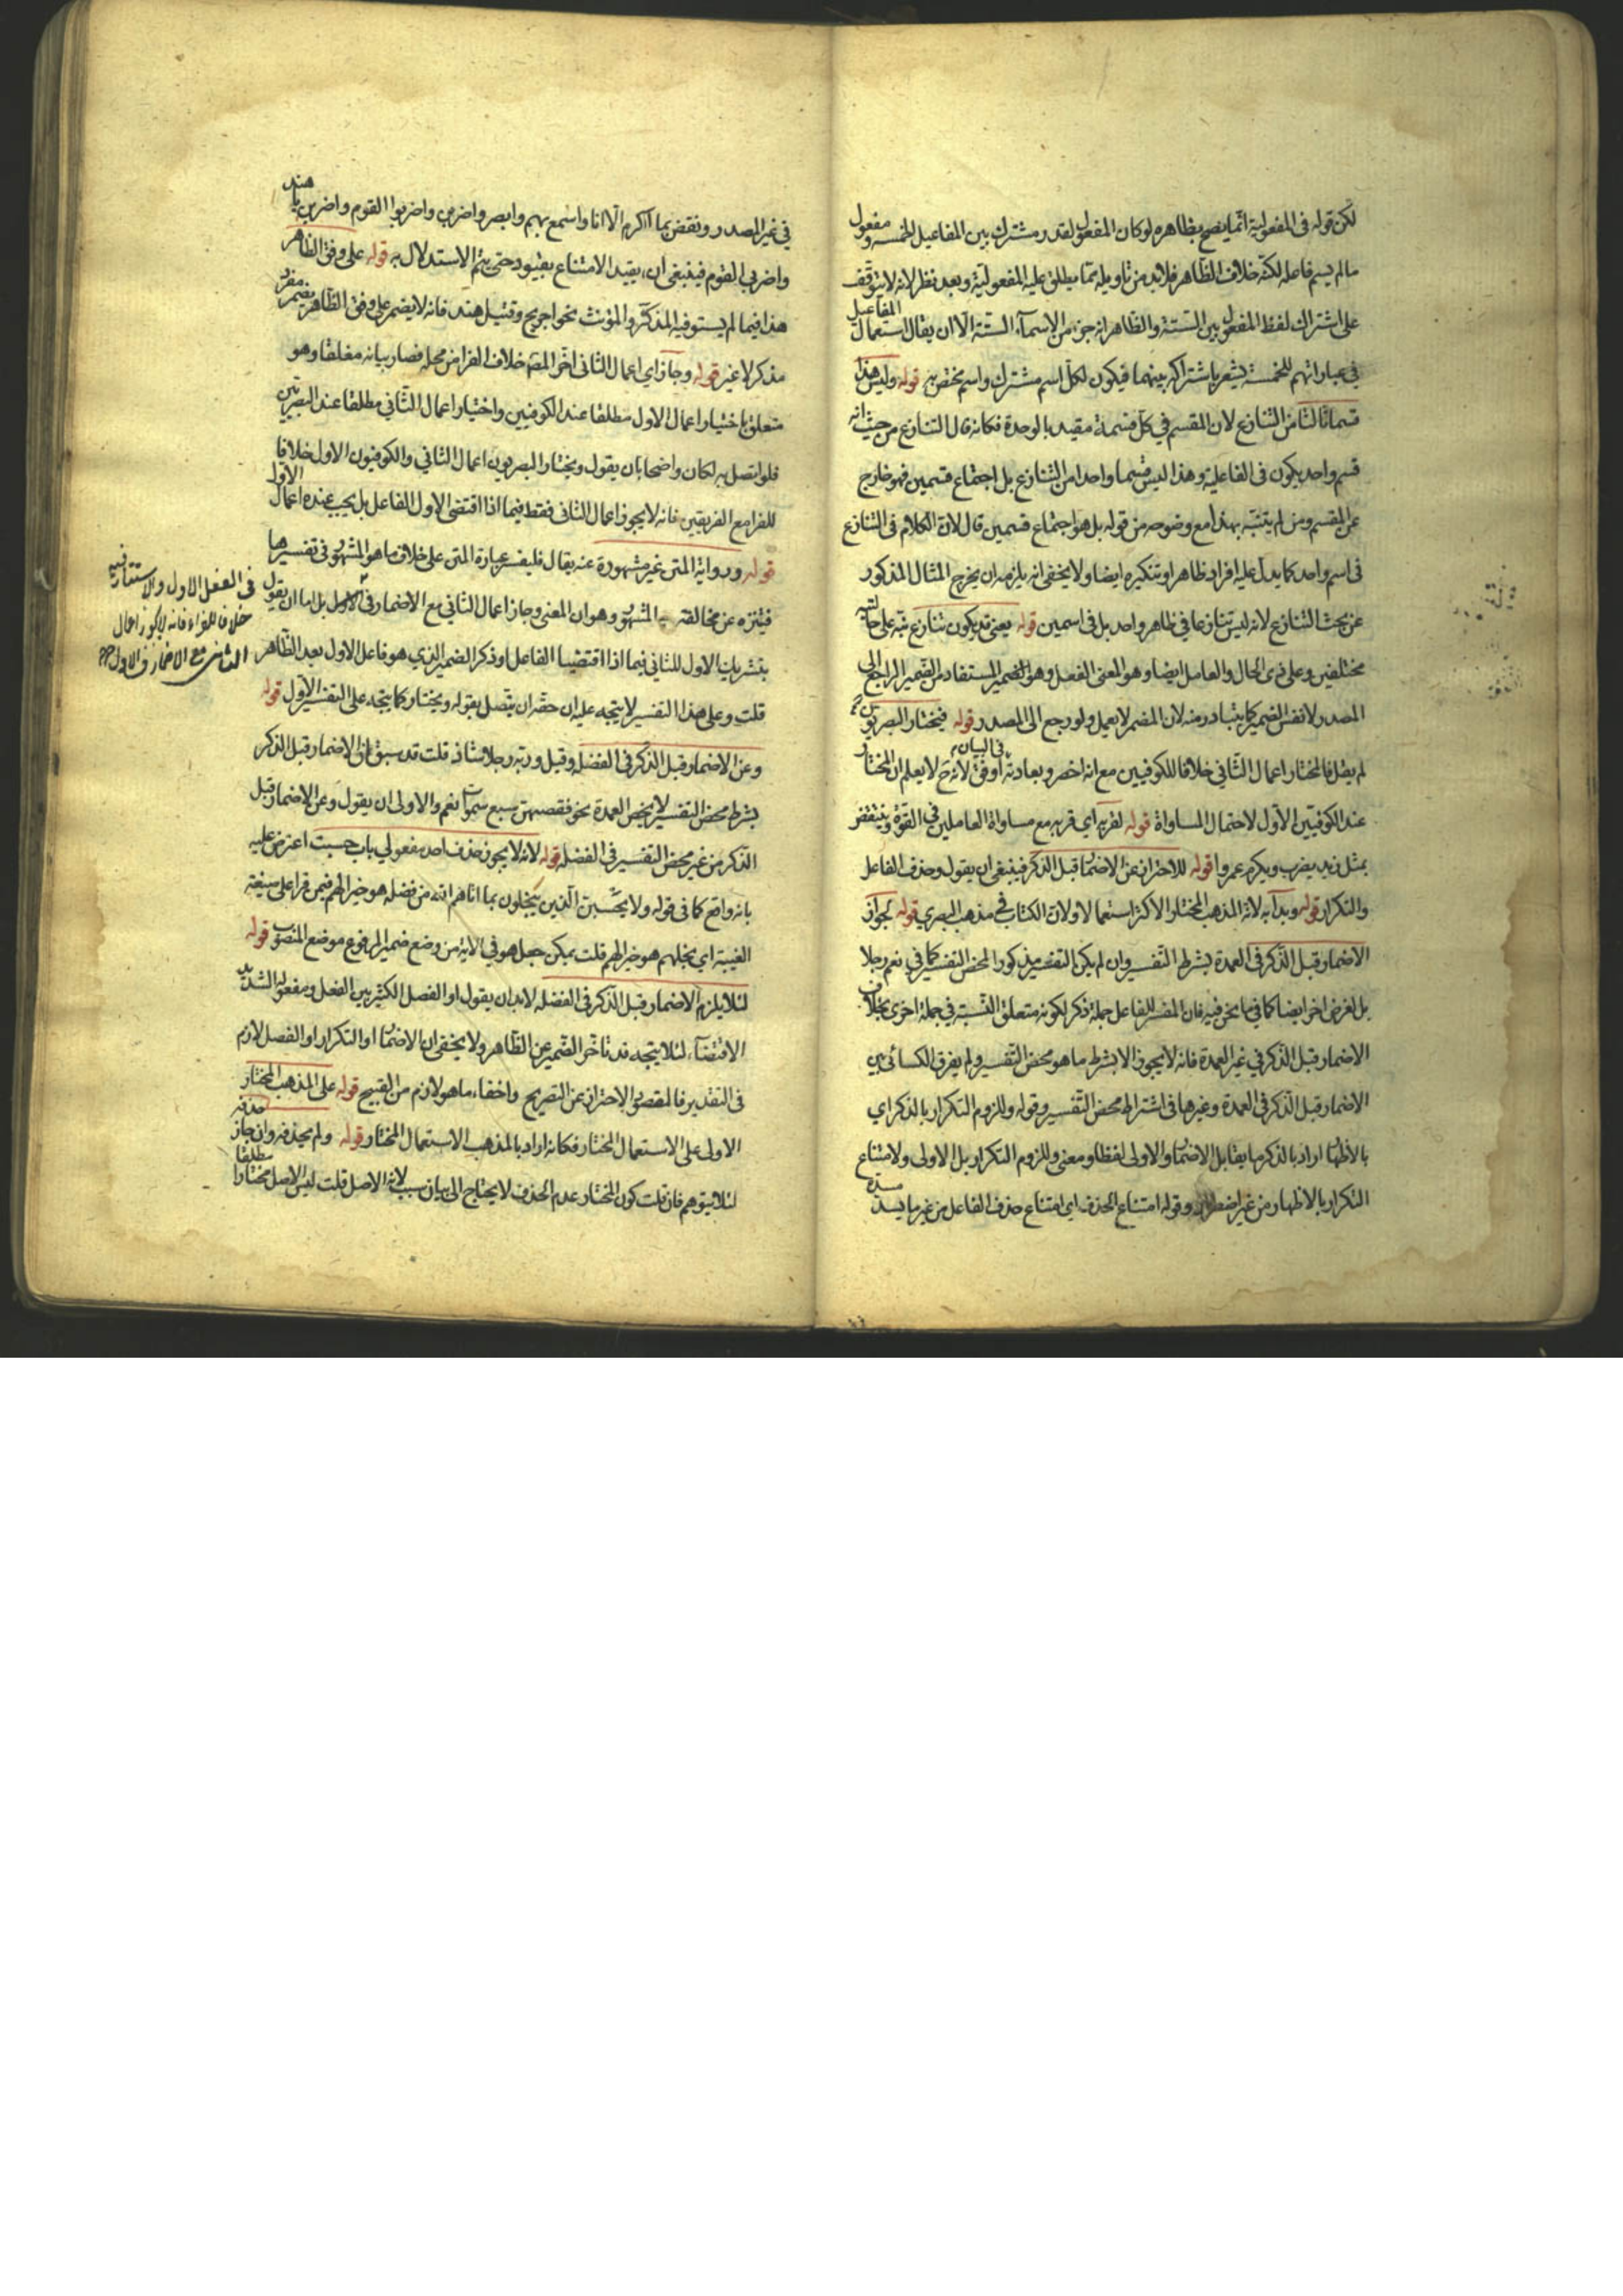 لكن قوله في المفعولية انما يصح بظاهره لو كان المفعول لقدر مشترك بين المفاعيل الخمسة ومفعول
ما لم يسم فاعله لكنه خلاف الظاهر فلا بد من تاويله بما يطلق عليه المفعولية وبعد نظر لانه لا يتوقف
على اشتراك لفظ المفعول بين الستة والظاهر انه جزء من الاسماء الستة الا ان يقال استعمال المفاعيل
في عباراتهم للخمسة يشعر باشتراكه بينهما فيكون لكل اسم مشترك واسم مختص به قوله وليس هذا
قسما ثالثا من التنازع لان المقسم في كل قسمة مقيد بالوحدة فكانه قال التنازع من حيث انه
قسم واحد يكون في الفاعلية وهذا ليس قسما واحدا من التنازع بل اجتماع قسمين فهو خارج
عن المقسم ومن لم يتنبه بهذا مع وضوحه من قوله بل هو اجتماع قسمين قال لان الكلام في التنازع
في اسم واحد كما يدل عليه افراد ظاهرا وتنكيره ايضا ولا يخفى انه يلزمه ان يخرج المثال المذكور
عن بحث التنازع لانه ليس تنازعا في ظاهر واحد بل في اسمين قوله يعني قد يكون تنازع نبه على
مختلفين وعلى ذي الحال والعامل ايضا وهو المعنى الفعل وهو الضمير المستفاد من الضمير الراجع الى
المصدر لا نفس الضمير كما يتبادر منه لان المضمر لا يعمل ولو رجع الى المصدر قوله فيختار البصريون
لم يقل فالمختار اعمال الثاني خلافا للكوفيين مع انه اخصر وبعادته في البيان اوفق لانه ح لا يعلم ان المختار
عند الكوفيين الاول لاحتمال المساواة قوله لقربه اي قربه مع مساواة العاملين في القوة وينتقض
بمثل زيد يضرب ويكرم عمروا قوله للاحتراز عن الاضمار قبل الذكر فينبغي ان يقول وحذف الفاعل
والتكرار قوله وبدأ به لانه المذهب المختار الاكثر استعمالا ولان الكتاب في مذهب البصري قوله لجواز
الاضمار قبل الذكر في العمدة بشرط التفسير وان لم يكن التفسير مذكورا لمحض التفسير كما في نعم رجلا
بل لغرض اخر ايضا كما فيما نحن فيه فان المفسر للفاعل جملة ذكر لكونه متعلق النسبة في جملة اخرى بخلاف
الاضمار قبل الذكر في غير العمدة فانه لا يجوز الا بشرط ما هو محض التفسير ولم يفرق الكسائي بين
الاضمار قبل الذكر في العمدة وغيرها في اشتراط محض التفسير وقوله وللزوم التكرار بالذكر اي
بالاظهار اراد بالذكر ما يقابل الاضمار والاولى لفظا ومعنى وللزوم التكرار بل الاولى ولامتناع
التكرار بالاظهار من غير اضطرار وقوله امتناع الحذف اي امتناع حذف الفاعل من غير ما يسد مسده
في غير المصدر ونقض بما اكرم الا انا واسمع بهم وابصر واضربن واضربوا القوم واضربن يا هند
واضربي القوم فينبغي ان يقيد الامتناع بقيود حتى يتم الاستدلال به قوله على وفق الظاهر
هذا فيما لم يستو فيه المذكر والمؤنث نحو جريح وقتيل هند فانه لا يضمر على وفق الظاهر يضمر مفرد
مذكر لا غير قوله وجاز اي اعمال الثاني اخر المص خلاف الفرا من محله فصار بيانه مغلقا وهو
متعلق باختيار اعمال الاول مطلقا عند الكوفيين واختيار اعمال الثاني مطلقا عند البصريين
فلو اتصل به لكان واضحا بان يقول ويختار البصريون اعمال الثاني والكوفيون الاول خلافا
للفرا مع الفريقين فانه لا يجوز اعمال الثاني فقط فيما اذا اقتضى الاول الفاعل بل يجب عنده اعمال الاول
قوله ورواية المتن غير مشهورة عنه يقال فليفسر عبارة المتن على خلاف ما هو المشهور في تفسيرها
فيتنزه عن مخالفة المشهور وهو ان المعنى وجاز اعمال الثاني مع الاضمار في الاول بل اما ان يقول
بتشريك الاول للثاني فيما اذا اقتضيا الفاعل او ذكر الضمير الذي هو فاعل الاول بعد الظاهر
قلت وعلى هذا التفسير لا يتجه عليه ان حقه ان يتصل بقوله ويختار كما يتجه على التفسير الاول قوله
وعن الاضمار قبل الذكر في الفضلة وقيل وربه رجلا شاذ قلت قد سبق ان الاضمار قبل الذكر
بشرط محض التفسير لا يخص العمدة نحو فقضيهن سبع سموات نعم والاولى ان يقول وعن الاضمار قبل
الذكر من غير محض التفسير في الفضلة قوله لانه لا يجوز حذف احد مفعولي باب حسبت اعترض عليه
بانه واقع كما في قوله ولا يحسبن الذين يبخلون بما اتاهم الله من فضله هو خيرا لهم فيمن قرا على صيغة
الغيبة اي بخلهم هو خيرا لهم قلت يمكن جعل هو في الاية من وضع ضمير المرفوع موضع المنصوب قوله
لئلا يلزم الاضمار قبل الذكر في الفضلة لا بد ان يقول او الفصل الكثير بين الفعل ومفعوله الشديد
الاقتضاء لئلا يتجه قد تاخر الضمير عن الظاهر ولا يخفى ان الاضمار او التكرار او الفصل لازم
في التقدير فالمقصود الاحتراز عن التصريح واخفاء ما هو لازم من القبيح قوله على المذهب المختار
الاولى على الاستعمال المختار فكانه اراد بالمذهب الاستعمال المختار قوله ولم يحذفه وان جاز حذفه
لئلا يتوهم فان قلت كون المختار عدم الحذف لا يحتاج الى بيان سبب لانه الاصل قلت ليس الاصل مختارا مطلقا
في الفعل الاول والاستتار فيه
خلافا للفراء فانه لا يجوز اعمال
الثاني مع الاضمار في الاول